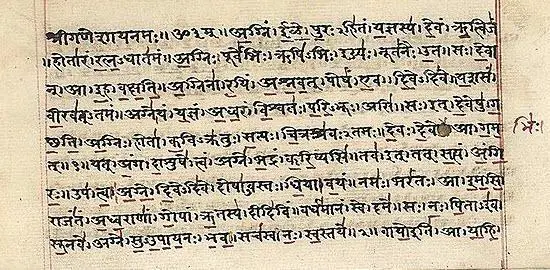 श्रीगणेशायनमः॥ॐ३म्॥अग्निं।ईळे।पुरःऽहितं।यज्ञस्य।देवं।ऋत्विजं
॥होतारं।रत्नऽधातमं॥अग्निः।पूर्वेभिः।ऋषिऽभिः।ईड्यः।नूतनैः।उत॥सः।देवा
न्।आ।इह।वक्षति॥अग्निना।रयिं।अश्नवत्।पोषं।एव।दिवेऽदिवे॥यशसं।
वीरवत्ऽतमं॥अग्ने।यं।यज्ञं।अध्वरं।विश्वतः।परिऽभूः।असि॥सः।इत्।देवेषु।ग
च्छति॥अग्निः।होता।कविऽक्रतुः।सत्यः।चित्रश्रवःऽतमः॥देवः।देवे।आ।गम
भिः।
त्॥१॥यत्।अंग।दाशुषे।त्वं।अग्ने।भद्रं।करिष्यसि॥तव।इत्।तत्।सत्यं।अंगि
रः॥उप।त्वा।अग्ने।दिवेऽदिवे।दोषाऽवस्तः।धिया।वयं॥नमः।भरंतः।आ।इमसि॥
राजंतं।अध्वराणां।गोपां।ऋतस्य।दीदिविं॥वर्धमानं।स्वे।दमे॥सः।नः।पिताऽइव।
सूनवे।अग्ने।सुऽउपायनः।भव॥सचस्व।नः।स्वस्तये॥२॥वायो इति।आ।याहि।